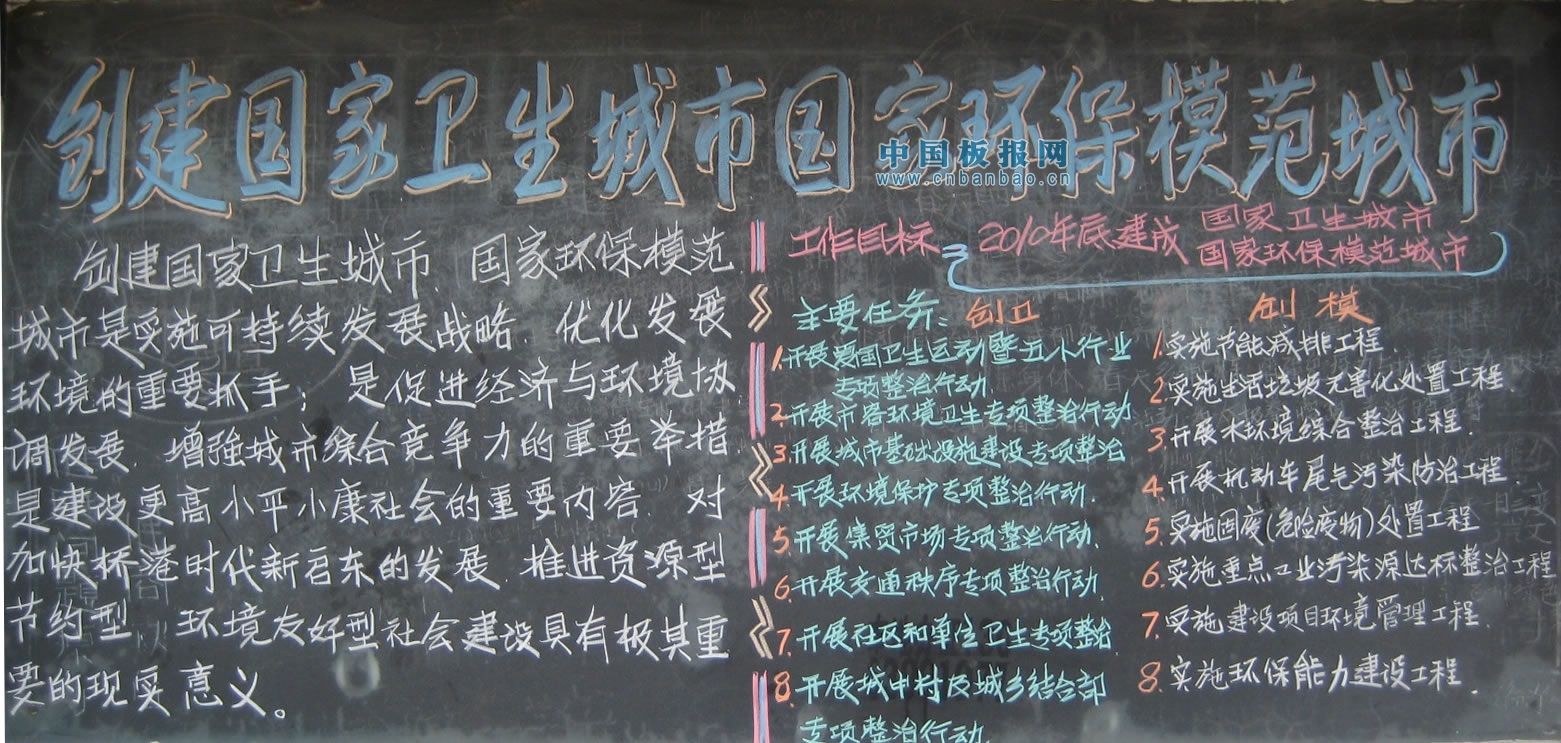 创建国家卫生城市国家环保模范城市
中国板报网
www.cnbanbao.cn
创建国家卫生城市、国家环保模范
城市是实施可持续发展战略、优化发展
环境的重要抓手；是促进经济与环境协
调发展、增强城市综合竞争力的重要举措、
是建设更高小平小康社会的重要内容、对
加快桥港时代新启东的发展、推进资源型
节约型、环境友好型社会建设具有极其重
要的现实意义。
工作目标 2010年底建成 国家卫生城市
国家环保模范城市
主要任务：创卫
1.开展爱国卫生运动暨五小行业
专项整治行动.
2.开展市容环境卫生专项整治行动
3.开展城市基础设施建设专项整治
4.开展环境保护专项整治行动.
5.开展集贸市场专项整治行动.
6.开展交通秩序专项整治行动.
7.开展社区和单位卫生专项整治
8.开展城中村及城乡结合部
专项整治行动.
创模
1.实施节能减排工程.
2.实施生活垃圾无害化处置工程.
3.开展水环境综合整治工程.
4.开展机动车尾气污染防治工程.
5.实施固废(危险废物)处置工程
6.实施重点工业污染源达标整治工程
7.实施建设项目环境管理工程.
8.实施环保能力建设工程.